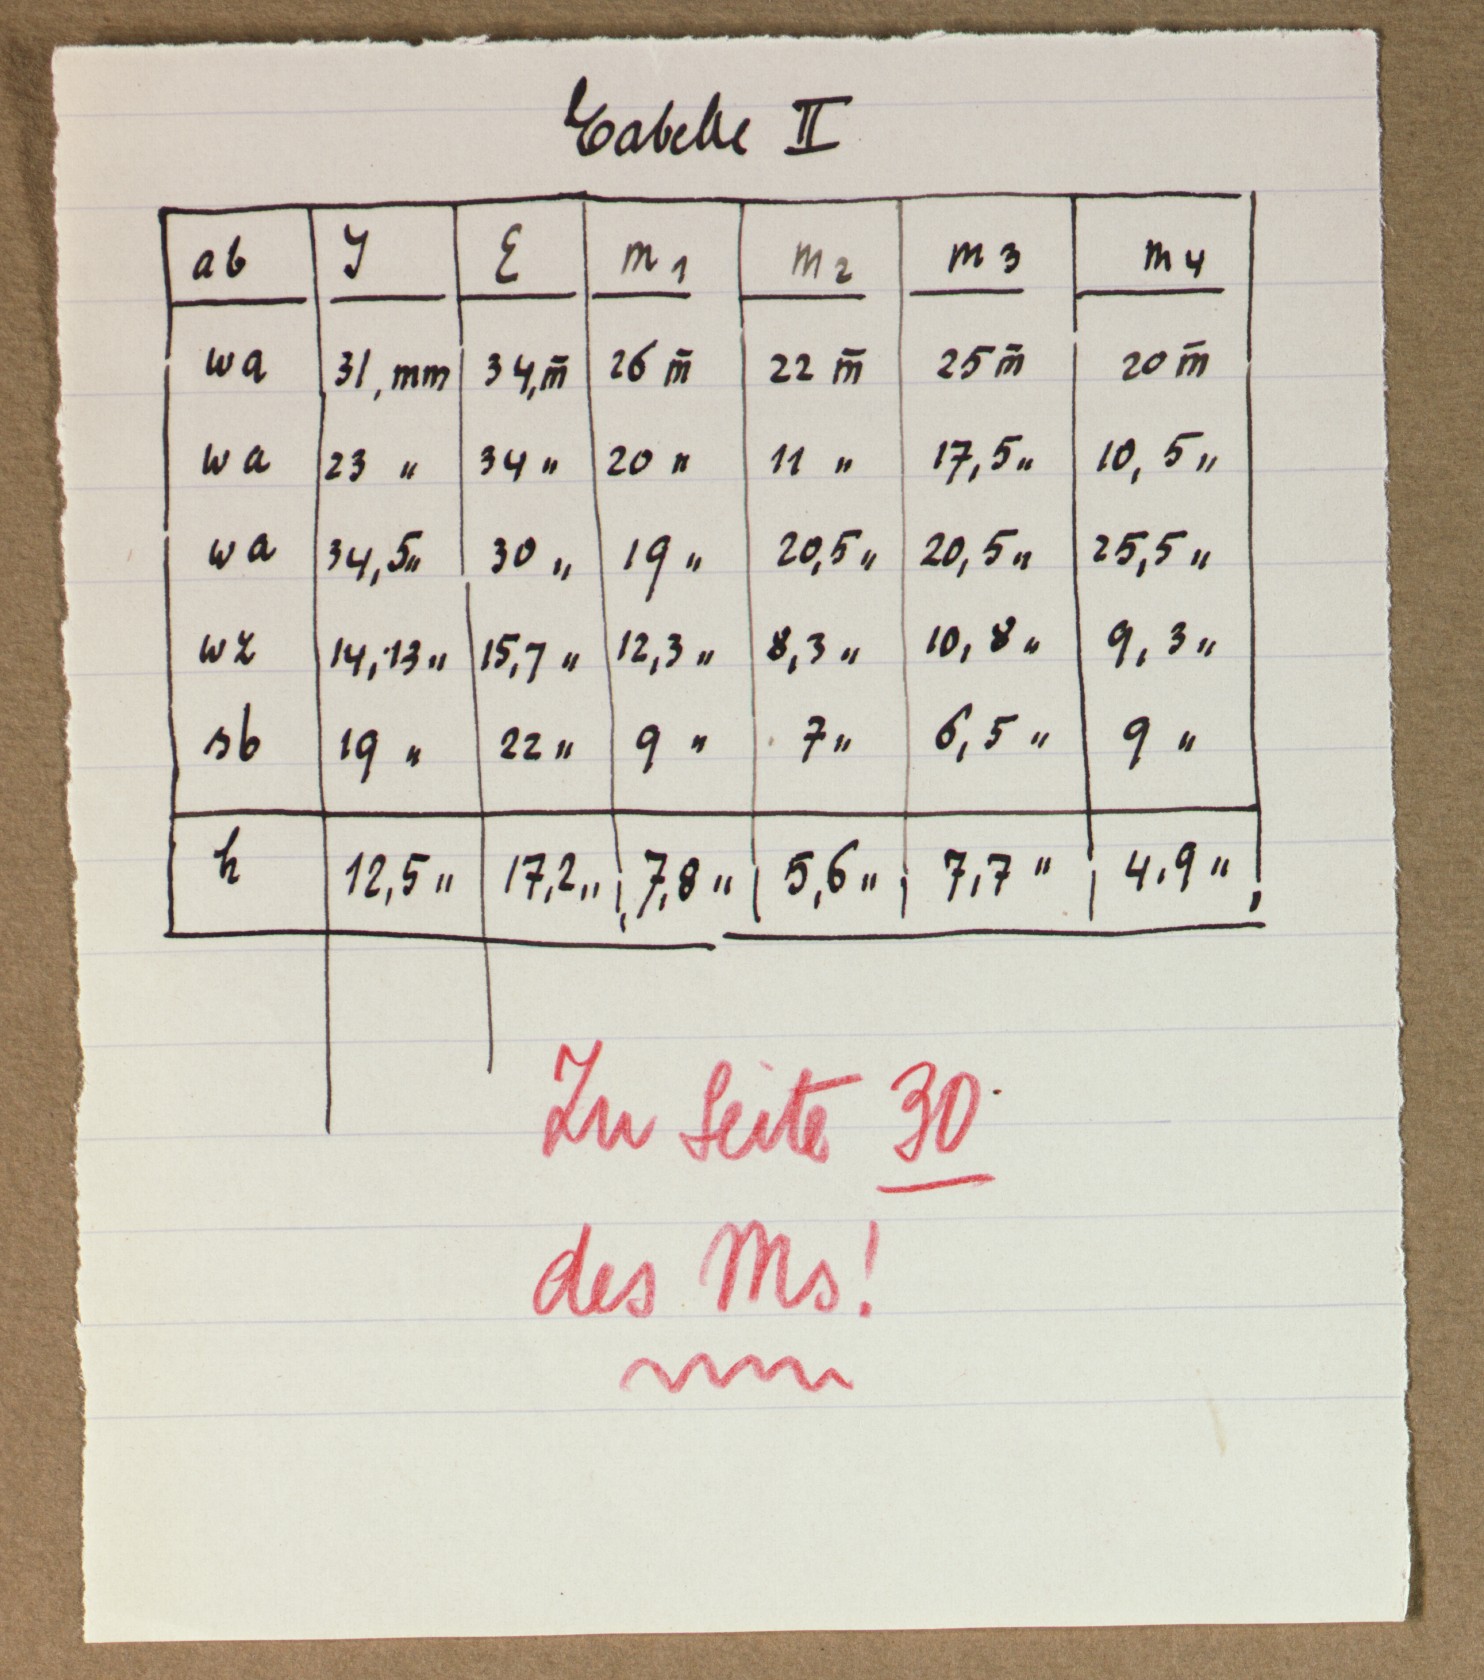 Tabelle II
ab J E m1 m2 m3 m4
wa 31, mm 34, m̄ 26 m̄ 22 m̄ 25 m̄ 20 m̄
wa 23 „ 34 „ 20 „ 11 „ 17,5 „ 10,5 „
wa 34,5 „ 30 „ 19 „ 20,5 „ 20,5 „ 25,5 „
wz 14,13 „ 15,7 „ 12,3 „ 8,3 „ 10,8 „ 9,3 „
sb 19 „ 22 „ 9 „ 7 „ 6,5 „ 9 „
h 12,5 „ 17,2 „ 7,8 „ 5,6 „ 7,7 „ 4,9 „
Zu Seite 30
des Ms!